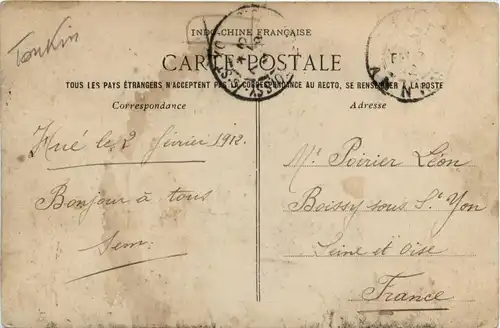 Tonkin
INDO-CHINE FRANÇAISE
CARTE POSTALE
TOUS LES PAYS ÉTRANGERS N'ACCEPTENT PAS LA CORRESPONDANCE AU RECTO, SE RENSEIGNER A LA POSTE
Correspondance
Hué le 2 février 1912.
Bonjour à tous
Sem.
Adresse
Mr Poirier Léon
Boissy sous St Yon
Seine et Oise
France